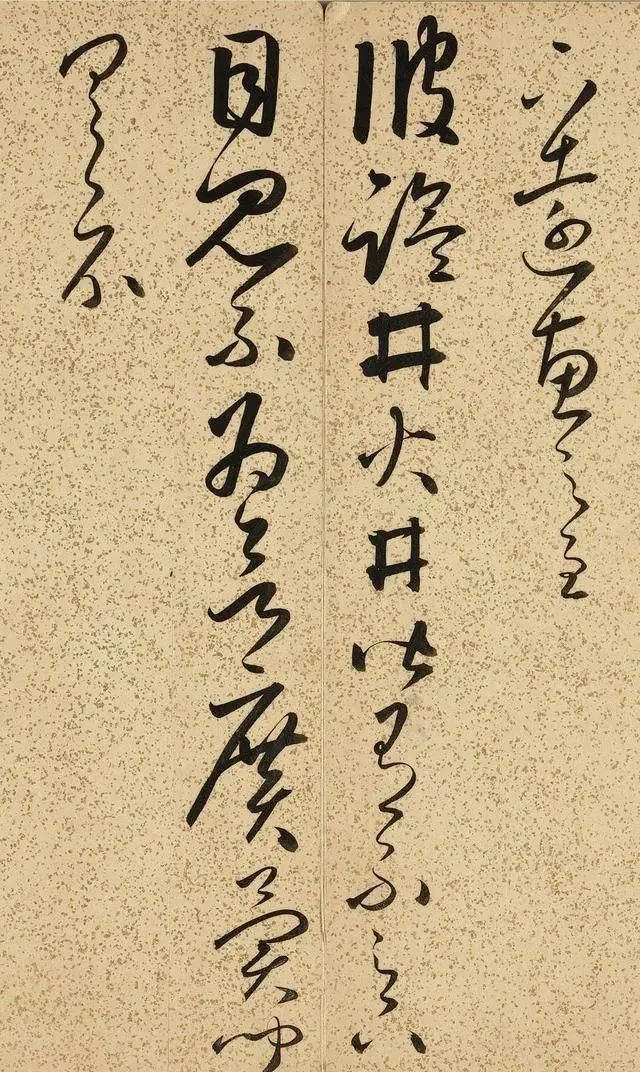 遠惠之至
彼鹽井火井皆有不足下
目見不為欲廣異聞
具示